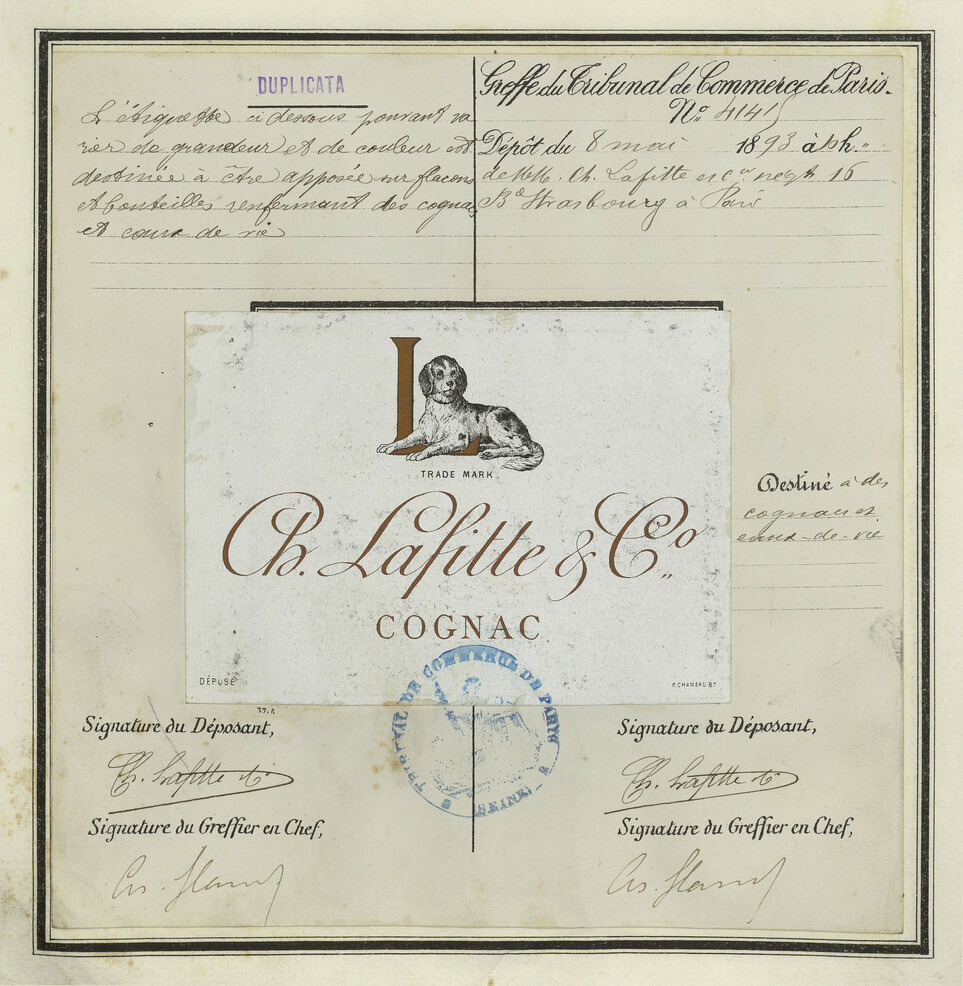 DUPLICATA
L'étiquette ci dessous pouvant va
rier de grandeur et de couleur est
destinée à être apposée sur flacons
et bouteilles renfermant des cognacs
et eaux de vie
Greffe du Tribunal de Commerce de Paris.
No: 41415
Dépôt du 8 mai 1893 à h. "
de MM. Ch. Lafitte et Cie negts 16
Bd Strasbourg à Paris
L
TRADE MARK
Ch. Lafitte & Co
COGNAC
DÉPOSÉ
P. CHAMEAU Bx
Destiné à des
cognacs et
eaux-de-vie
TRIBUNAL DE COMMERCE DE PARIS
(SEINE)
Signature du Déposant,
Ch. Lafitte & Cie
Signature du Greffier en Chef,
Signature du Déposant,
Ch. Lafitte & Cie
Signature du Greffier en Chef,